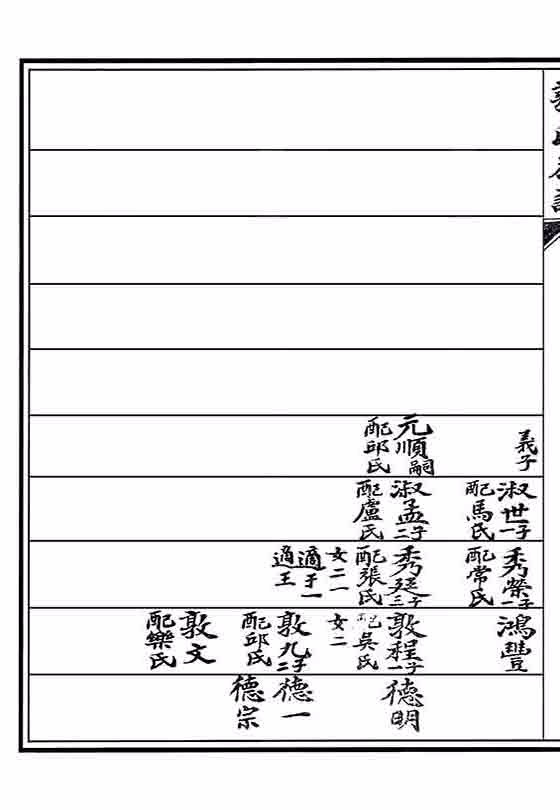 義子
元順嗣
配邱氏
淑世一子
配馬氏
淑孟二子
配盧氏
秀榮一子
配常氏
秀廷三子
配張氏
女二一
適于一
適王
鴻豐
敦程一子
配吳氏
女二
敦九二子
配邱氏
敦文
配樂氏
德明
德一
德宗